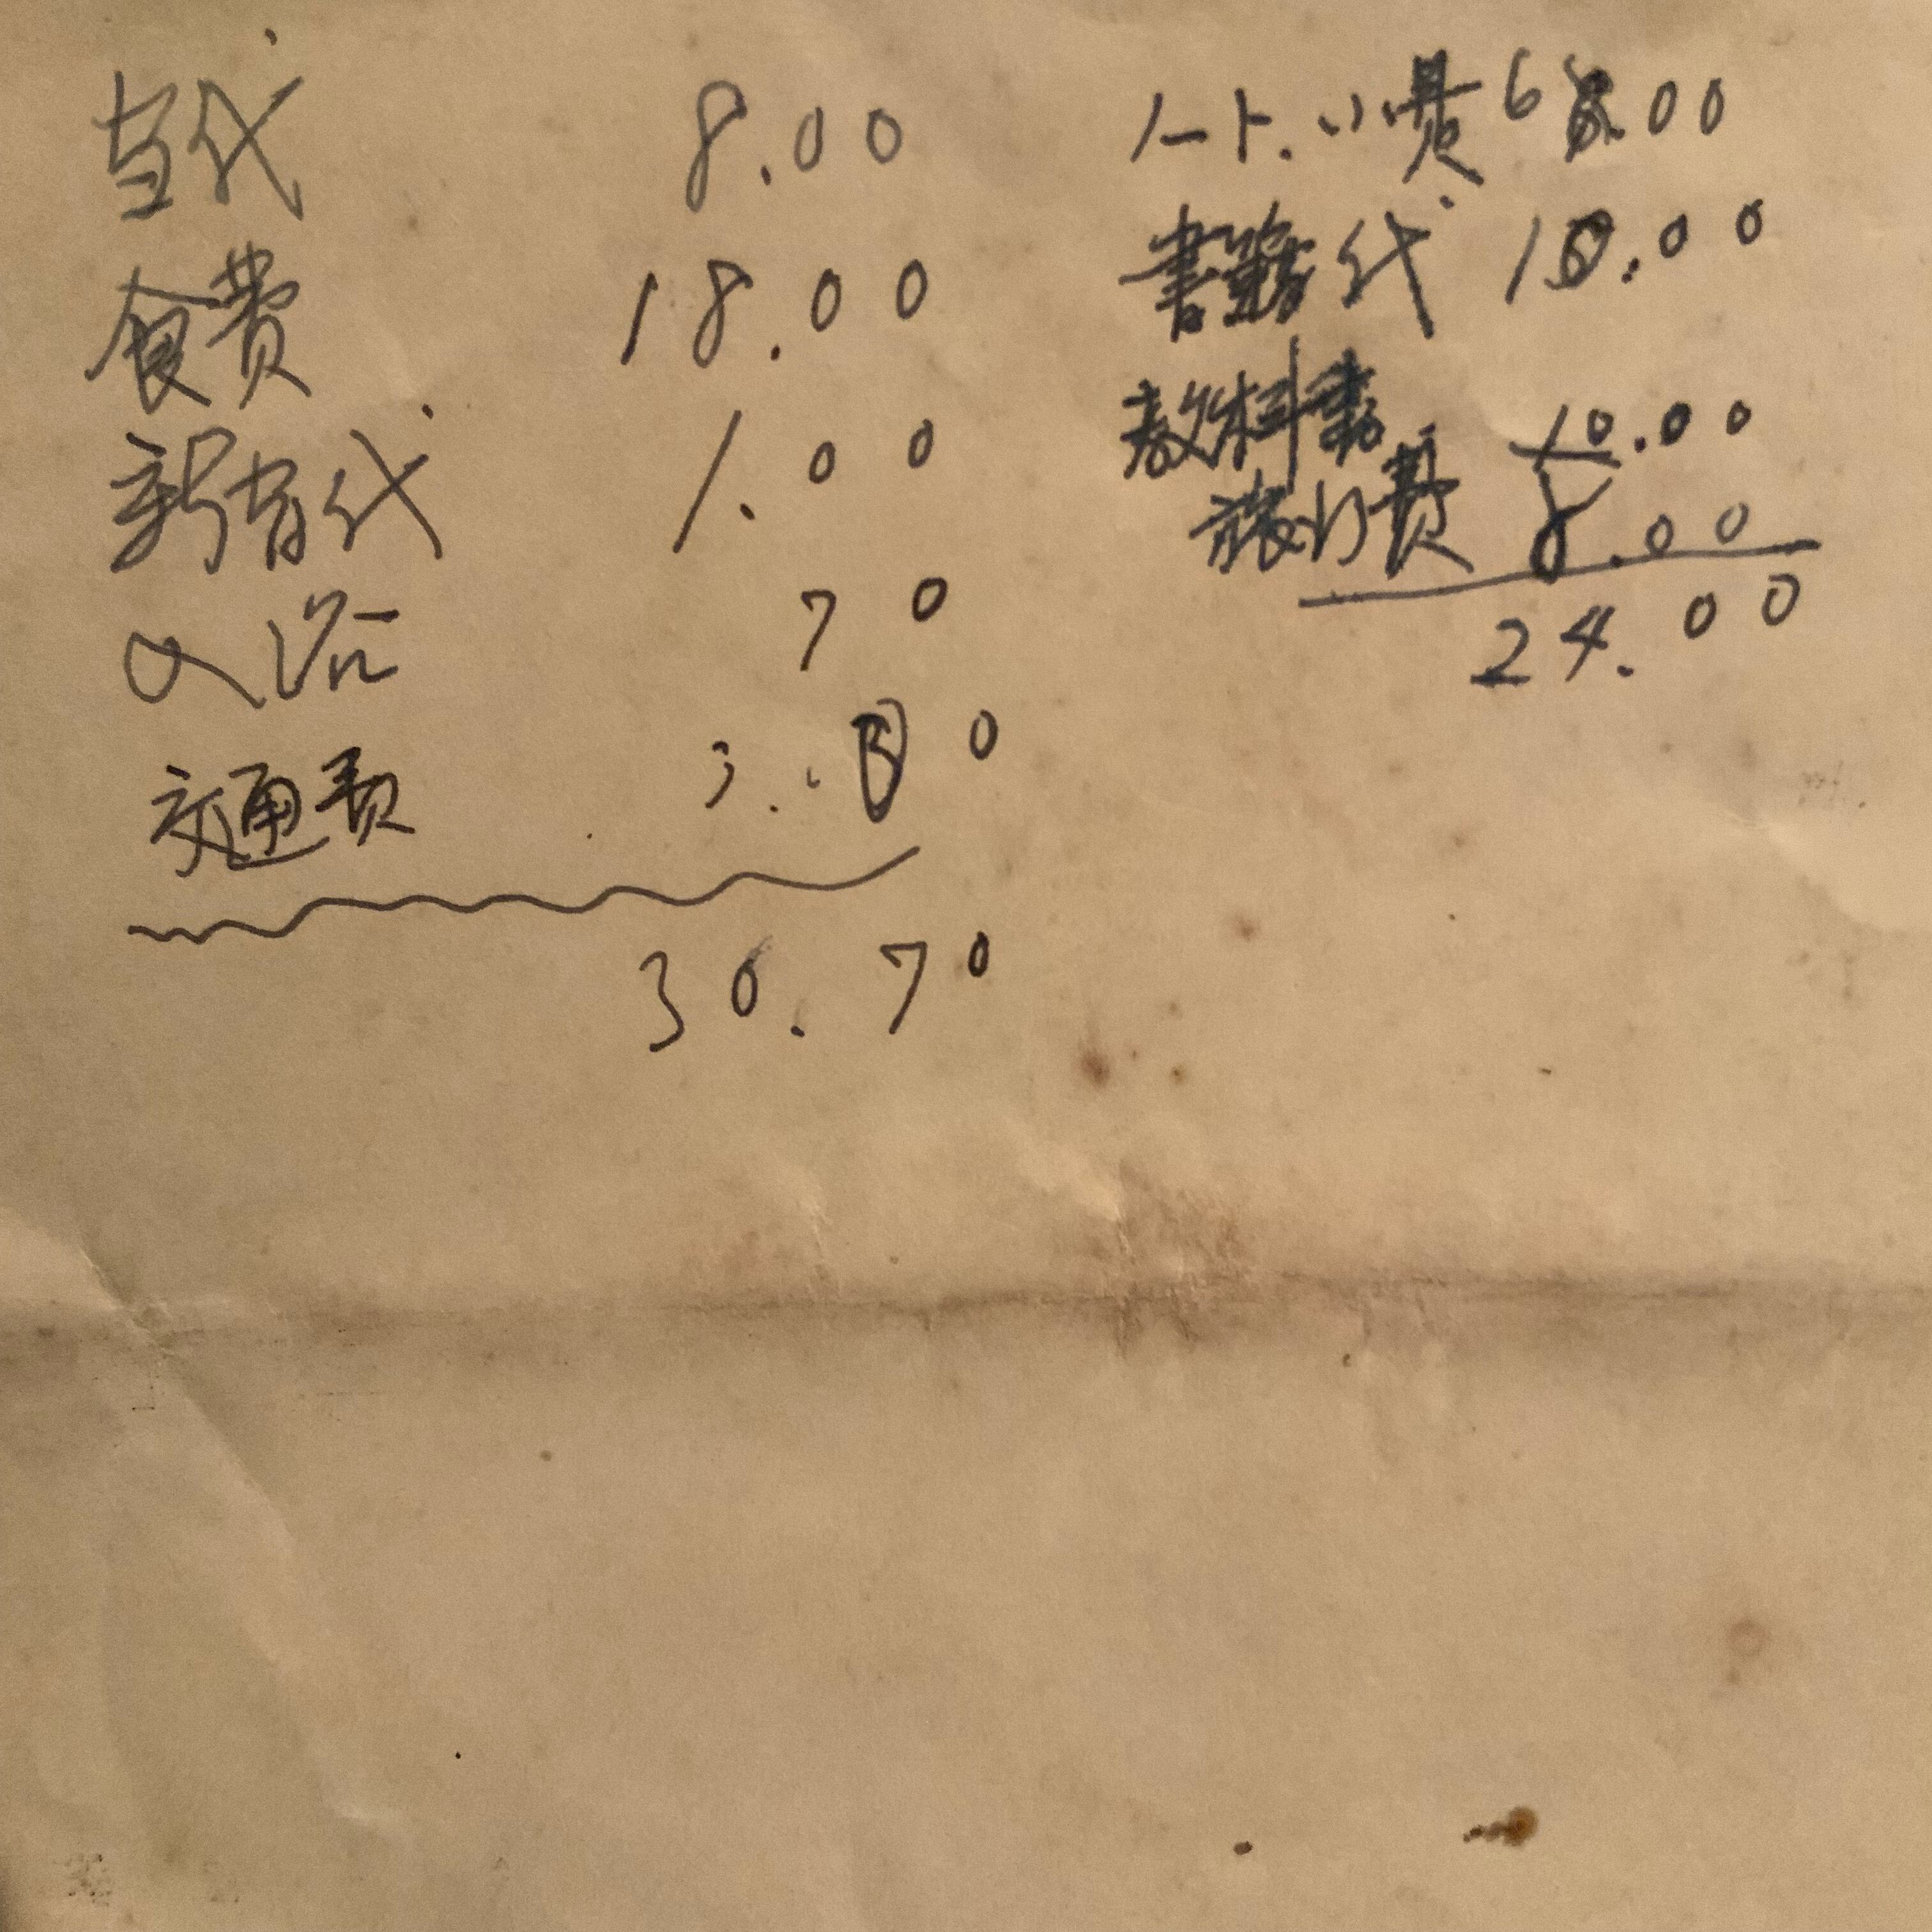 室代 8.00
食費 18.00
新聞代 1.00
入浴 70
交通費 3.00
30.70
小費 6.00
書籍代 10.00
教科書 10.00
裝訂費 8.00
24.00